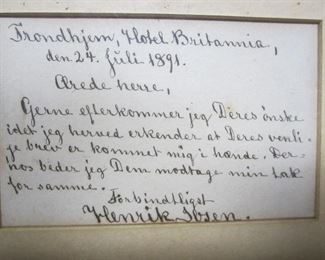 Trondhjem, Hotel Britannia,
den 24. Juli 1891.
Ærede herre,
Gerne efterkommer jeg Deres ønske
idet jeg herved erkender at Deres venli-
ge brev er kommet mig i hænde. Der-
hos beder jeg Dem modtage min tak
for samme.
Forbindtligst
Henrik Ibsen.